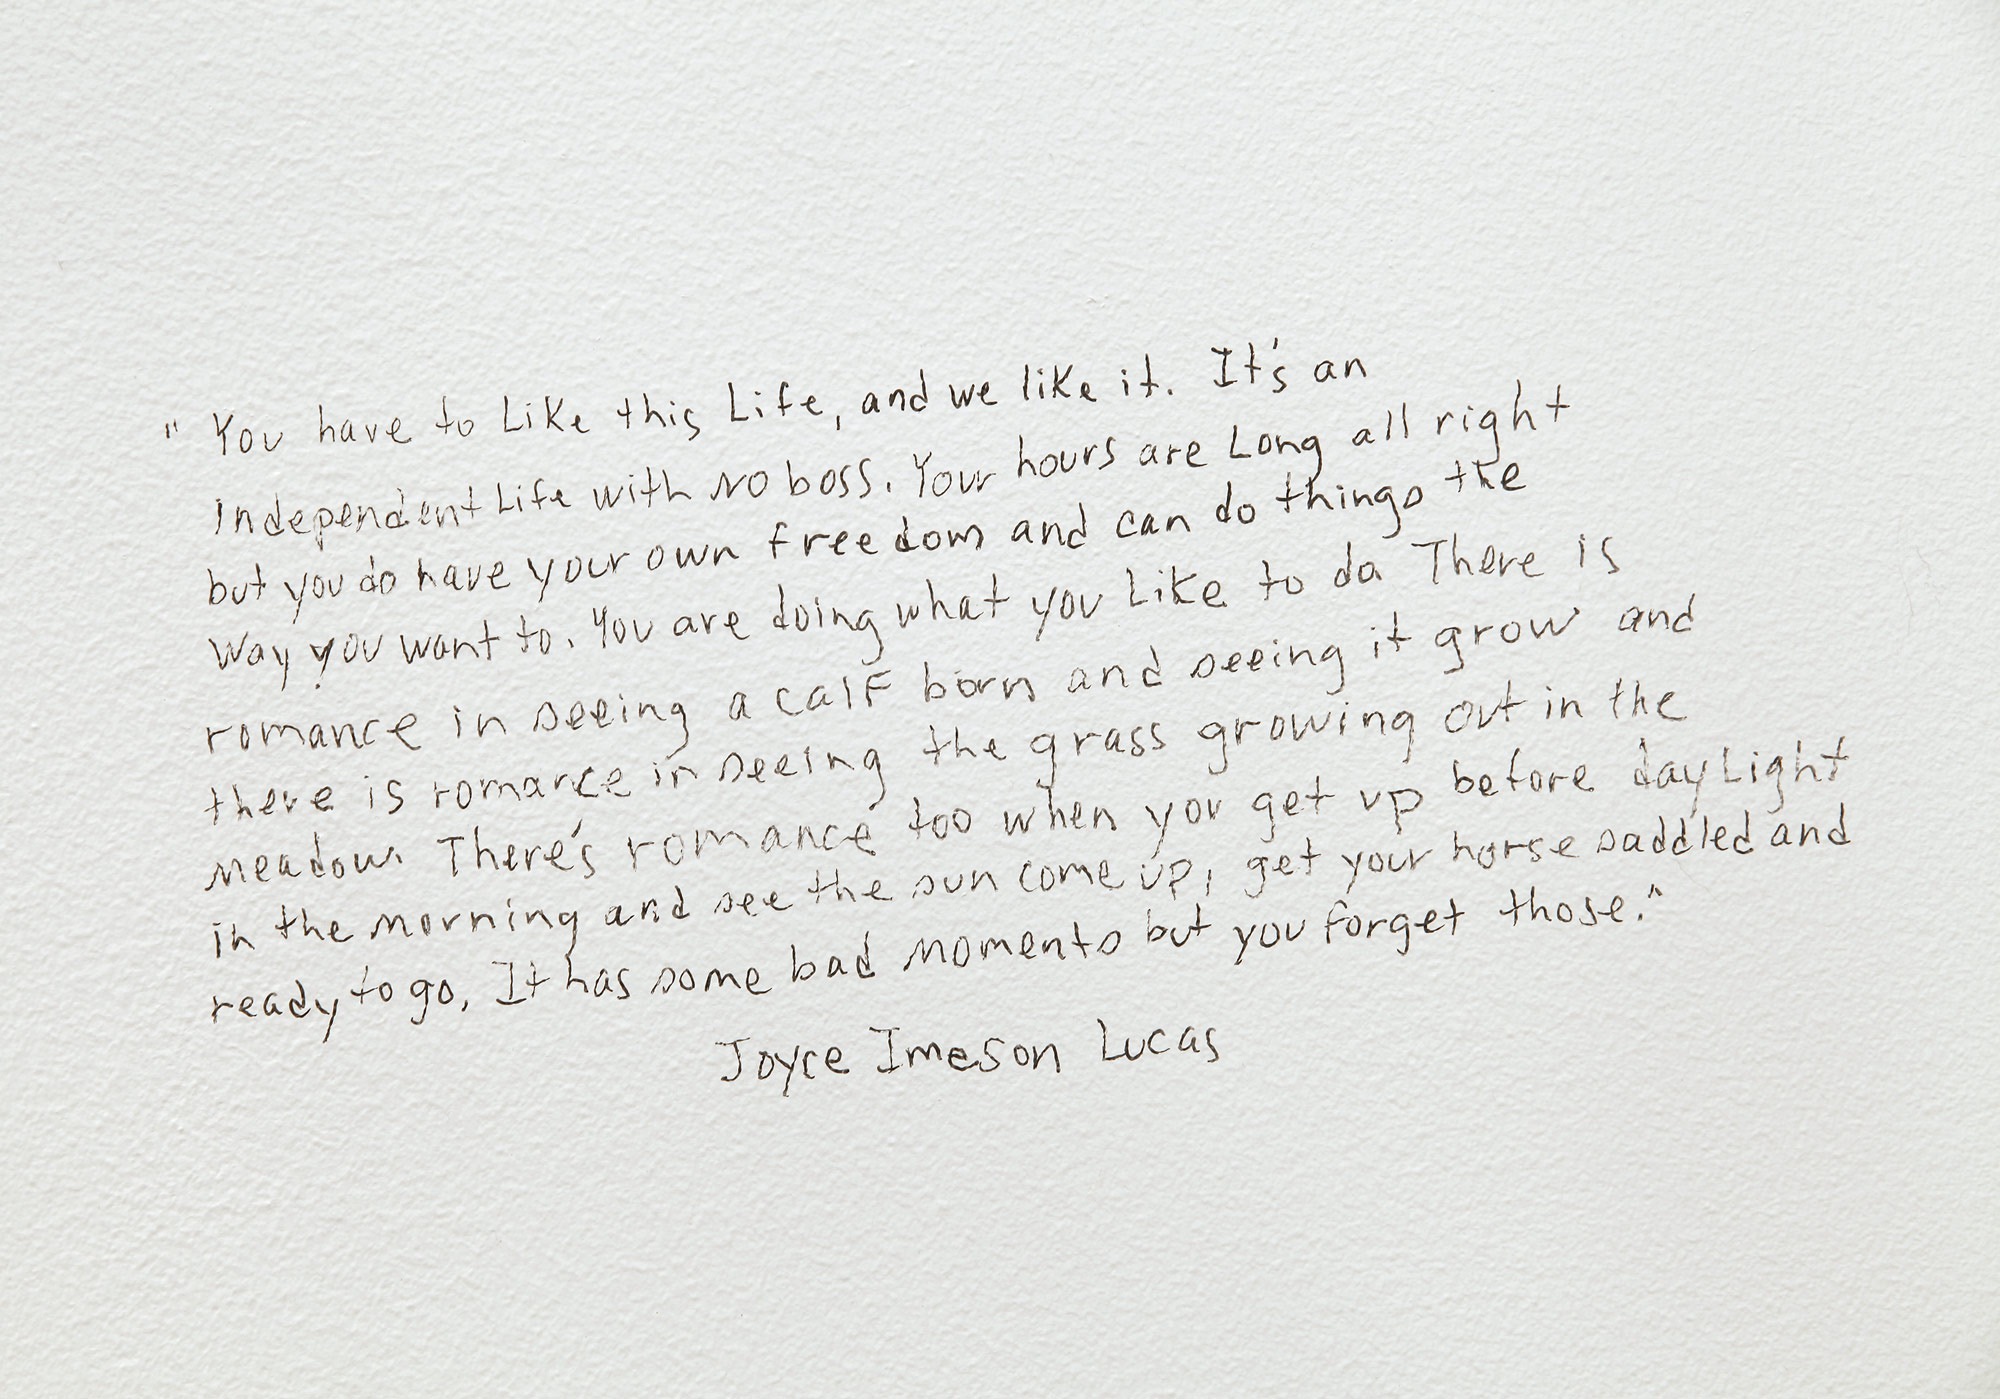 " You have to Like this Life, and we like it. It's an
independent Life with No boss. Your hours are Long all right
but you do have your own freedom and can do things the
way you want to. You are doing what you Like to do. There is
romance in seeing a calf born and seeing it grow and
there is romance in seeing the grass growing out in the
meadow. There's romance too when you get up before dayLight
in the morning and see the sun come up, get your horse saddled and
ready to go. It has some bad moments but you forget those."
Joyce Imeson Lucas